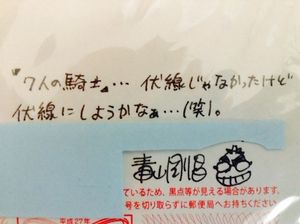 『7人の騎士』… 伏線じゃなかったけど
伏線にしようかなぁ…(笑)。
青山剛昌
ているため、黒点等が見える場合があります。
号を切り取らずに郵便局へお持ちください
平成27年